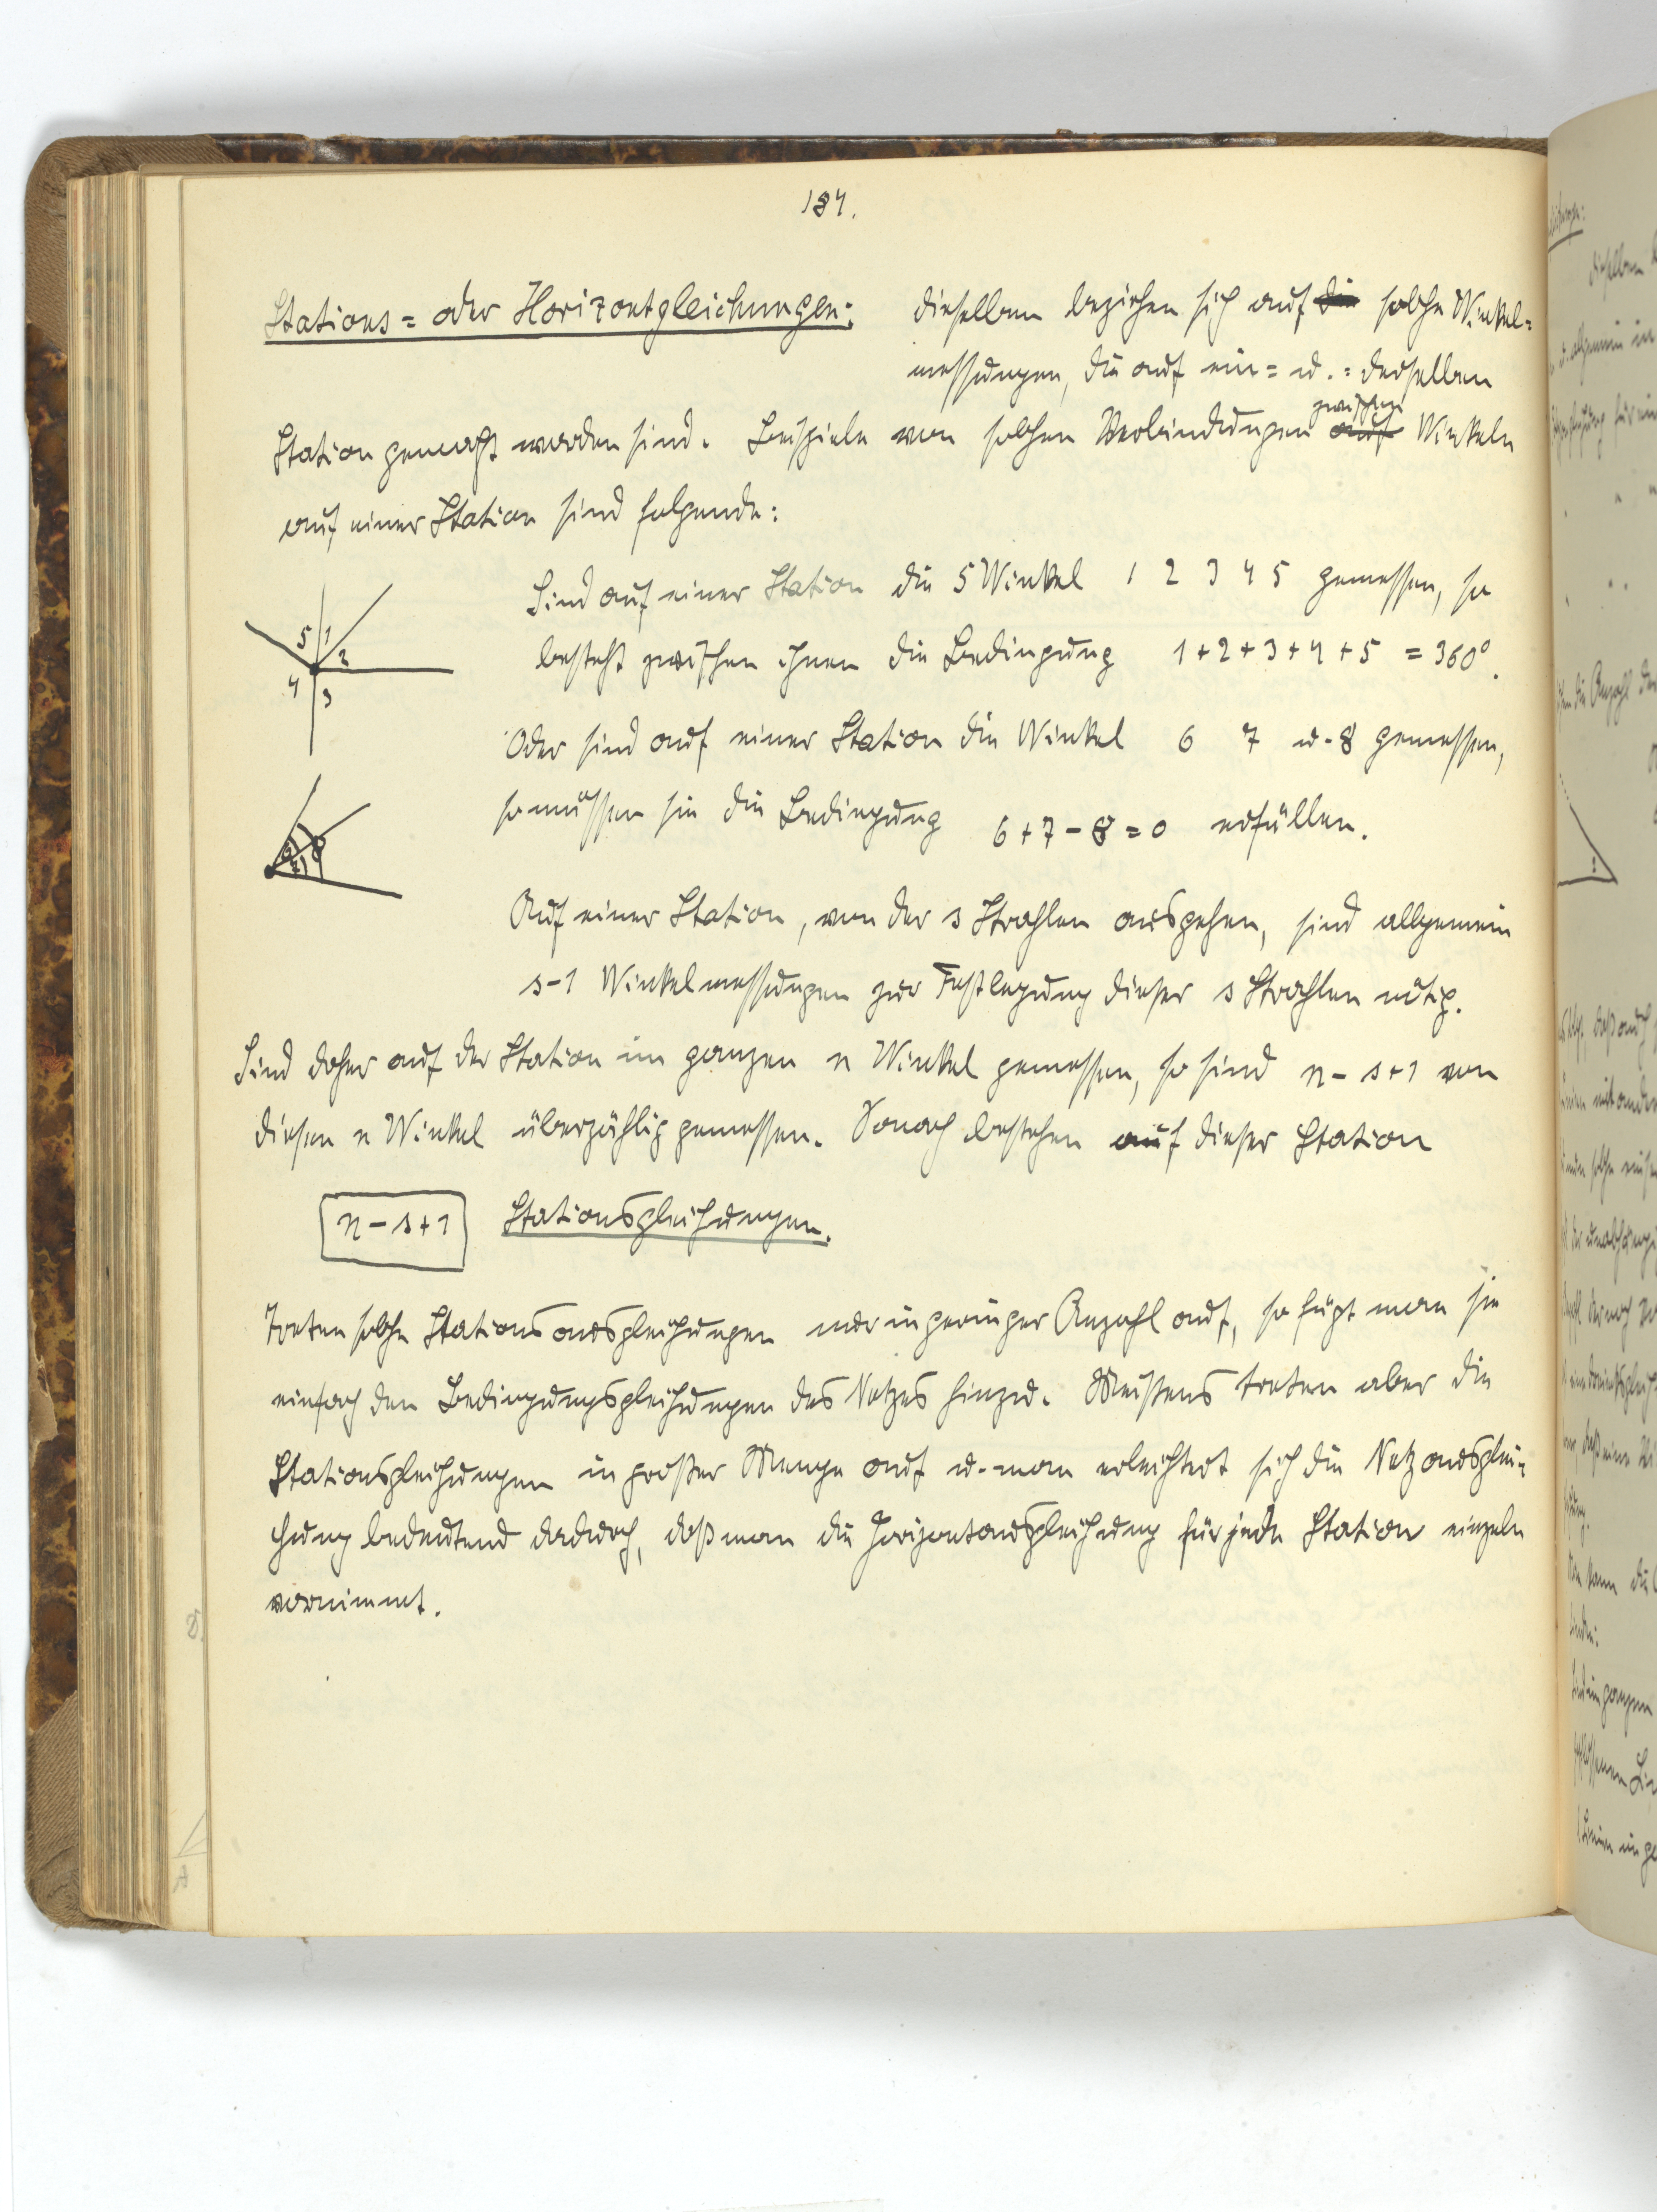 184.
Stations= oder Horizontgleichungen: dieselben beziehen sich auf die solche Winkel=
messungen, die auf ein= u.= derselben
Station gemacht worden sind. Beispiele von solchen Verbindungen auf zwischen Winkeln
auf einer Station sind folgende:
Sind auf einer Station die 5 Winkel 1 2 3 4 5 gemessen, so
5 1
2
4 3
besteht zwischen ihnen die Bedingung 1+2+3+4+5 = 360°.
Oder sind auf einer Station die Winkel 6 7 u. 8 gemessen,
so müssen sie die Bedingung 6+7-8=0 erfüllen.
6 8
7
Auf einer Station, von der s Strahlen ausgehen, sind allgemein
s-1 Winkelmessungen zur Festlegung dieser s Strahlen nötig.
Sind daher auf der Station im ganzen n Winkel gemessen, so sind n-s+1 von
diesen n Winkel überzählig gemessen. Sonach bestehen auf dieser Station
n-s+1 Stationsgleichungen.
Treten solche Stationsausgleichungen nur in geringer Anzahl auf, so fügt man sie
einfach den Bedingungsgleichungen des Netzes hinzu. Meistens treten aber die
Stationsgleichungen in großer Menge auf u. man erleichtert sich die Netzausglei=
chung bedeutend dadurch, daß man die Horizontausgleichung für jede Station einzeln
vornimmt.